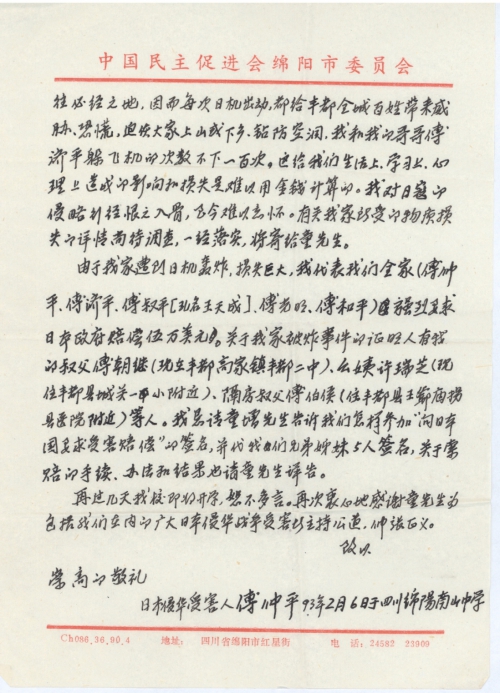 中国民主促进会绵阳市委员会
往必经之地，因而每次日机出动，都给丰都全城百姓带来威
胁、恐慌，迫使大家上山或下乡、钻防空洞，我和我的哥哥傅
济平躲飞机的次数不下一百次。这给我们生活上、学习上、心
理上造成的影响和损失是难以用金钱计算的。我对日寇的
侵略行径恨之入骨，至今难以忘怀。有关我家所受的物质损
失的详情尚待调查，一经落实，将寄给童先生。
由于我家遭到日机轰炸，损失巨大，我代表我们全家（傅帅
平、傅济平、傅叔平[现名王天成]、傅若明、傅和平）强烈要求
日本政府赔偿伍万美元。关于我家被炸事件的证明人有我
的叔父傅朝继（现在丰都高家镇丰都二中）、么姨许瑞芝（现
住丰都县城关一小附近）、隔房叔父傅伯侯（住丰都县王爷庙场
县医院附近）等人。我恳请童增先生告诉我们怎样参加“向日本
国要求受害赔偿”的签名，并代我们兄弟姊妹5人签名，关于索
赔的手续、办法和结果也请童先生详告。
再过几天我校即将开学，恕不多言。再次衷心地感谢童先生为
包括我们在内的广大日本侵华战争受害者主持公道，伸张正义。
致以
崇高的敬礼
日本侵华受害人 傅帅平 93年2月6日于四川绵陽南山中学
Ch086.36.90.4 地址： 四川省绵阳市红星街 电 话：24582 23909